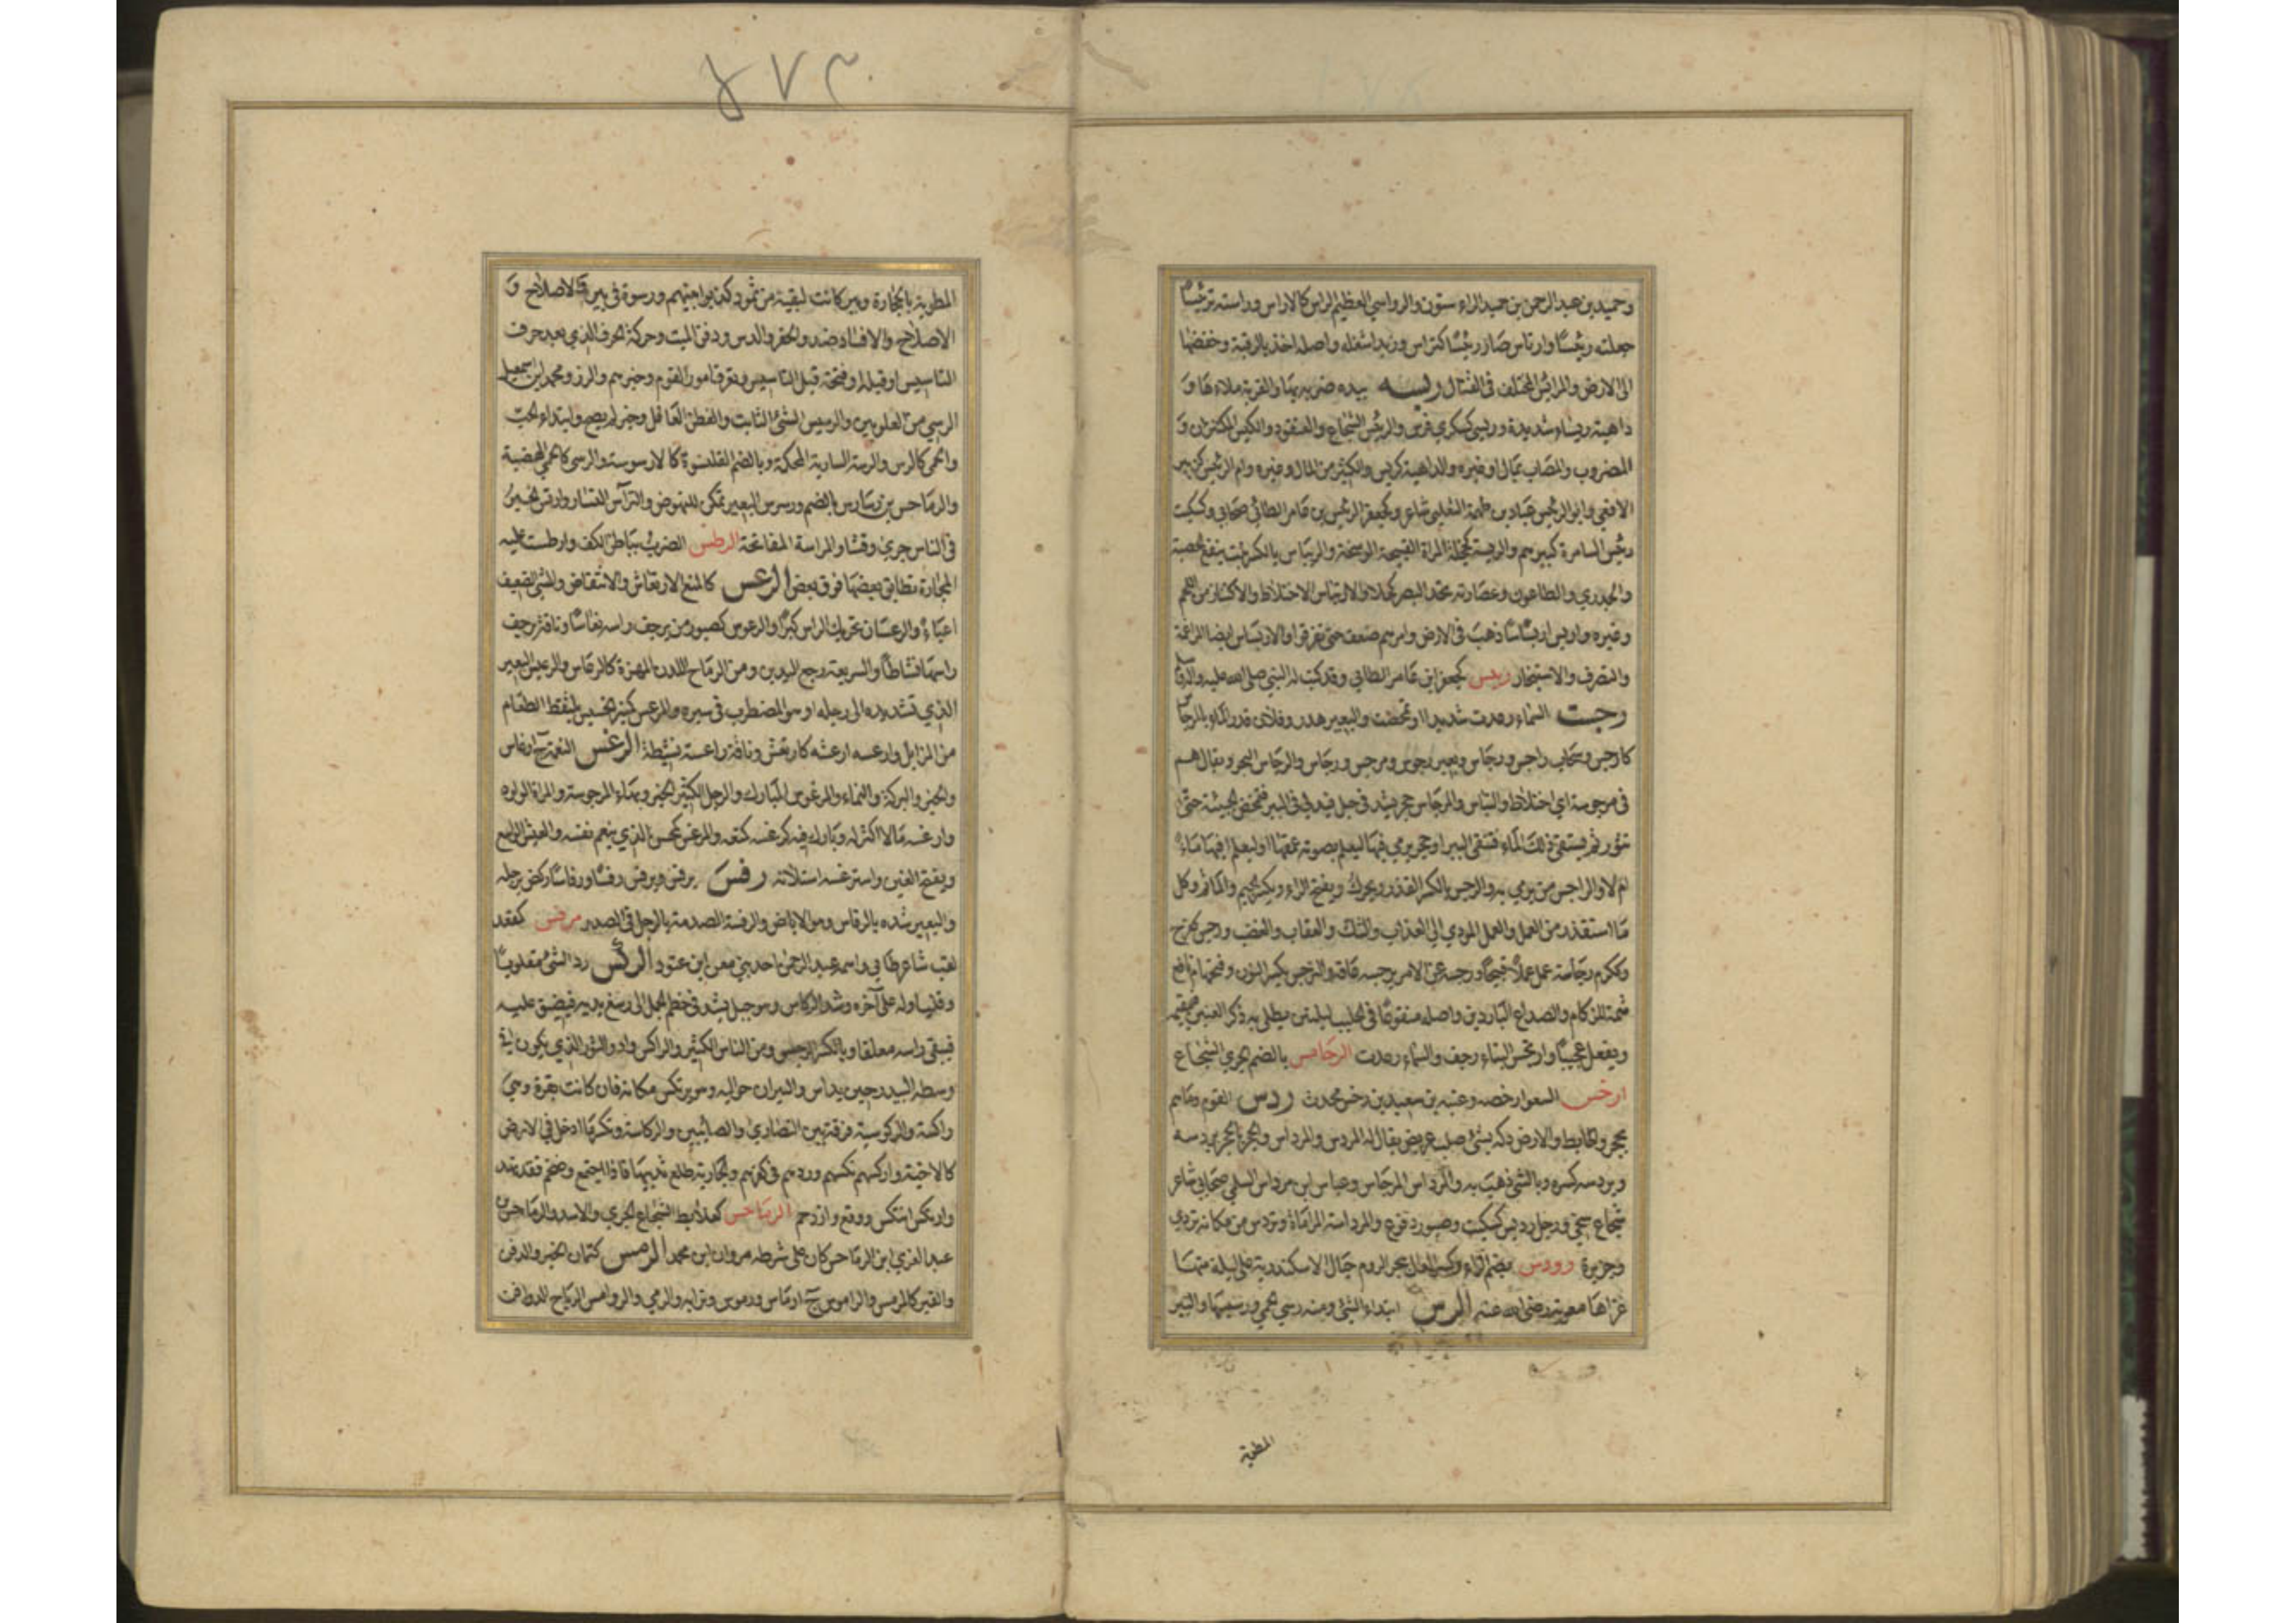 وحميد بن عبد الرحمن بن حميد الراء ستون والرواسي العظيم الراس كالاراس وراسته ترئيسا
جعلته رئيسا وارتاس صار رئيسا كتراس وزيدا شغله واصله اخذ بالرقبة وخفضها
الى الارض والمرائس المختلف في القتال ربسه بيده ضربه بها والقربة ملاءها و
داهية ربساء شديدة وربسى كسكرى فرس والربيس الشجاع والعنقود والكيس المكتنزان و
المضروب والمصاب بمال او غيره والداهية كربس والكثير من المال وغيره وام الربيس كزبير
الافعى وابو الربيس عباد بن طهمة الثعلبي شاعر وكجعفر الربتس بن عامر الطائي صحابي وكسكيت
ربيس السامرة كبيرهم والربسة كخجلة المراة القبيحة الوسخة والريباس بالكسر نبت ينفع الحصبة
والجدري والطاعون وعصارته تحد البصر كحلا والارتباس الاختلاط والاكتناز من اللحم
وغيره واربس اربساسا ذهب في الارض وامرهم ضعف حتى تفرقوا والاربساس ايضا المراغمة
والتصرف والاستيخار ربتس كجعفر ابن عامر الطائي وفد كتب له النبي صلى الله عليه وسلم
رجست السماء رعدت شديدا وتمخضت والبعير هدر وفلان قدر الماء بالمرجاس
كارجس وسحاب راجس ورجاس وبعير رجوس ومرجس ورجاس والرجاس البحر ويقال هم
في مرجوسة اي اختلاط والتباس والمرجاس حجر يشد في حبل فيدلى في البير فتمخض الحمئة حتى
تثور ثم يستقى ذلك الماء فتنقى البير او حجر يرمى فيها ليعلم بصوته عمقها او ليعلم افيها ماء
ام لا والراجس من يرمي به والرجس بالكسر القذر ويحرك ويفتح الراء ويكسر الجيم والماثم وكل
ما استقذر من العمل والعمل المودي الى العذاب والشك والعقاب والغضب ورجس كفرح
وككرم رجاسة عمل عملا قبيحا ورجسه عن الامر يرجسه عاقه والنرجس بكسر النون وفتحها نافع
شمه للزكام والصداع الباردين واصله منقوعا في الحليب ليلتين يطلى به ذكر العنين فيقيمه
ويفعل عجيبا وارتجس البناء رجف والسماء رعدت الرحامس بالضم الجري الشجاع
ارخس السعر ارخصه وعتبه بن سعيد بن رخس محدث ردس القوم رماهم
بحجر والحايط والارض دكه بشيء صلب عريض يقال له المردس والمرداس والحجر بالحجر يردسه
ويردسه كسره وبالشي ذهب به والمرداس المرجاس وعباس ابن مرداس السلمي صحابي شاعر
شجاع سخي ورجل رديس كسكيت وصبور دفوع والمرداسة المراماة وتردس من مكانه تردى
وجزيرة رودس بضم الراء وكسر الدال ببحر الروم حيال الاسكندرية على ليلة منها
غزاها معوية رضي الله عنه الرس ابتداء الشيء ومنه رسي الحمى ورسيسها والبير
المطوية
المطوية بالحجارة وبير كانت لبقية من ثمود كذبوا نبيهم ورسوه في بير والاصلاح و
الاصلاح والافساد ضد والحفر والدس ودفن الميت وحركة الحرف الذي بعد حرف
التاسيس او قبله او فتحة قبل التاسيس وتعرف امور القوم وخبرهم والرز ومحمد ابن اسمعيل
الرسي من العلويين والرسيس الشيء الثابت والفطن العاقل وخبر لم يصح وابتداء الحب
والحمى كالرس والرسة السارية المحكمة وبالضم القلنسوة كالارسوسة والرسى كالحمى الهضبة
والرماحس بن رسارس بالضم ورسرس البعير تمكن للنهوض والتراس التسار وارتس الخبر
في الناس جرى وفشا والمراسة المفاتحة الرطس الضرب بباطن الكف وارطست عليه
الحجارة تطابق بعضها فوق بعض الرعس كالمنع الارتعاش والانتفاض والمشي الضعيف
اعياء والرعسان تحريك الراس كبرا والرعوس كصبور من يرجف راسه نعاسا وناقة يرجف
راسها نشاطا والسريعة رجع اليدين ومن الرماح اللدن المهزة كالرعاس والرعيس البعير
الذي تشد يده الى رجله او من المضطرب في سيره والمرعس كمنبر الخسيس يلتقط الطعام
من المزابل وارعسه ارعشه كارتعش وناقة راعسة نشيطة الرغس النعمة ج ارغاس
والخير والبركة والنماء والمرغوس المبارك والرجل الكثير الخير وبهاء المرجوسة والمراة الولود
وارغسه مالا اكثر له وبارك فيه كرغسه كمنعه والمرغس كمحسن الذي ينعم نفسه والعيش الواسع
ويفتح الغين واسترغسه استلانه رفس يرفس ويرفس رفسا ورفاسا ركض برجله
والبعير شده بالرفاس وهو الاباض والرفسة الصدمة بالرجل في الصدر مرقس كمقعد
لقب شاعر طائي واسمه عبد الرحمن احد بني معن ابن عتود الركس رد الشيء مقلوبا
وقلب اوله على آخره وشد الركاس وهو حبل يشد في خطم الجمل الى رسغ يديه فيضيق عليه
فيبقى راسه معلقا وبالكسر الرجس ومن الناس الكثير والراكس واد والثور الذي يكون في
وسط البيدر حين يداس والثيران حواليه وهو يرتكس مكانه فان كانت بقرة وهي
راكسة والركوسية فرقة بين النصارى والصابئين والركاسة وتكسر ما ادخل في الارض
كالاخية واركسهم نكسهم وردهم في كفرهم والجارية طلع ثدييها فاذا اجتمع وضخم فقد نهد
وارتكس انتكس ووقع وازدحم الرماحس كعلابط الشجاع الجري والاسد والرماحس
عبد العزي ابن الرماحس كان على شرطه مروان ابن محمد الرمس كتمان الخبر والدفن
والقبر كالرمس والراموس ج ارماس ورموس وترابه والرمي والروامس الرياح الدوافن